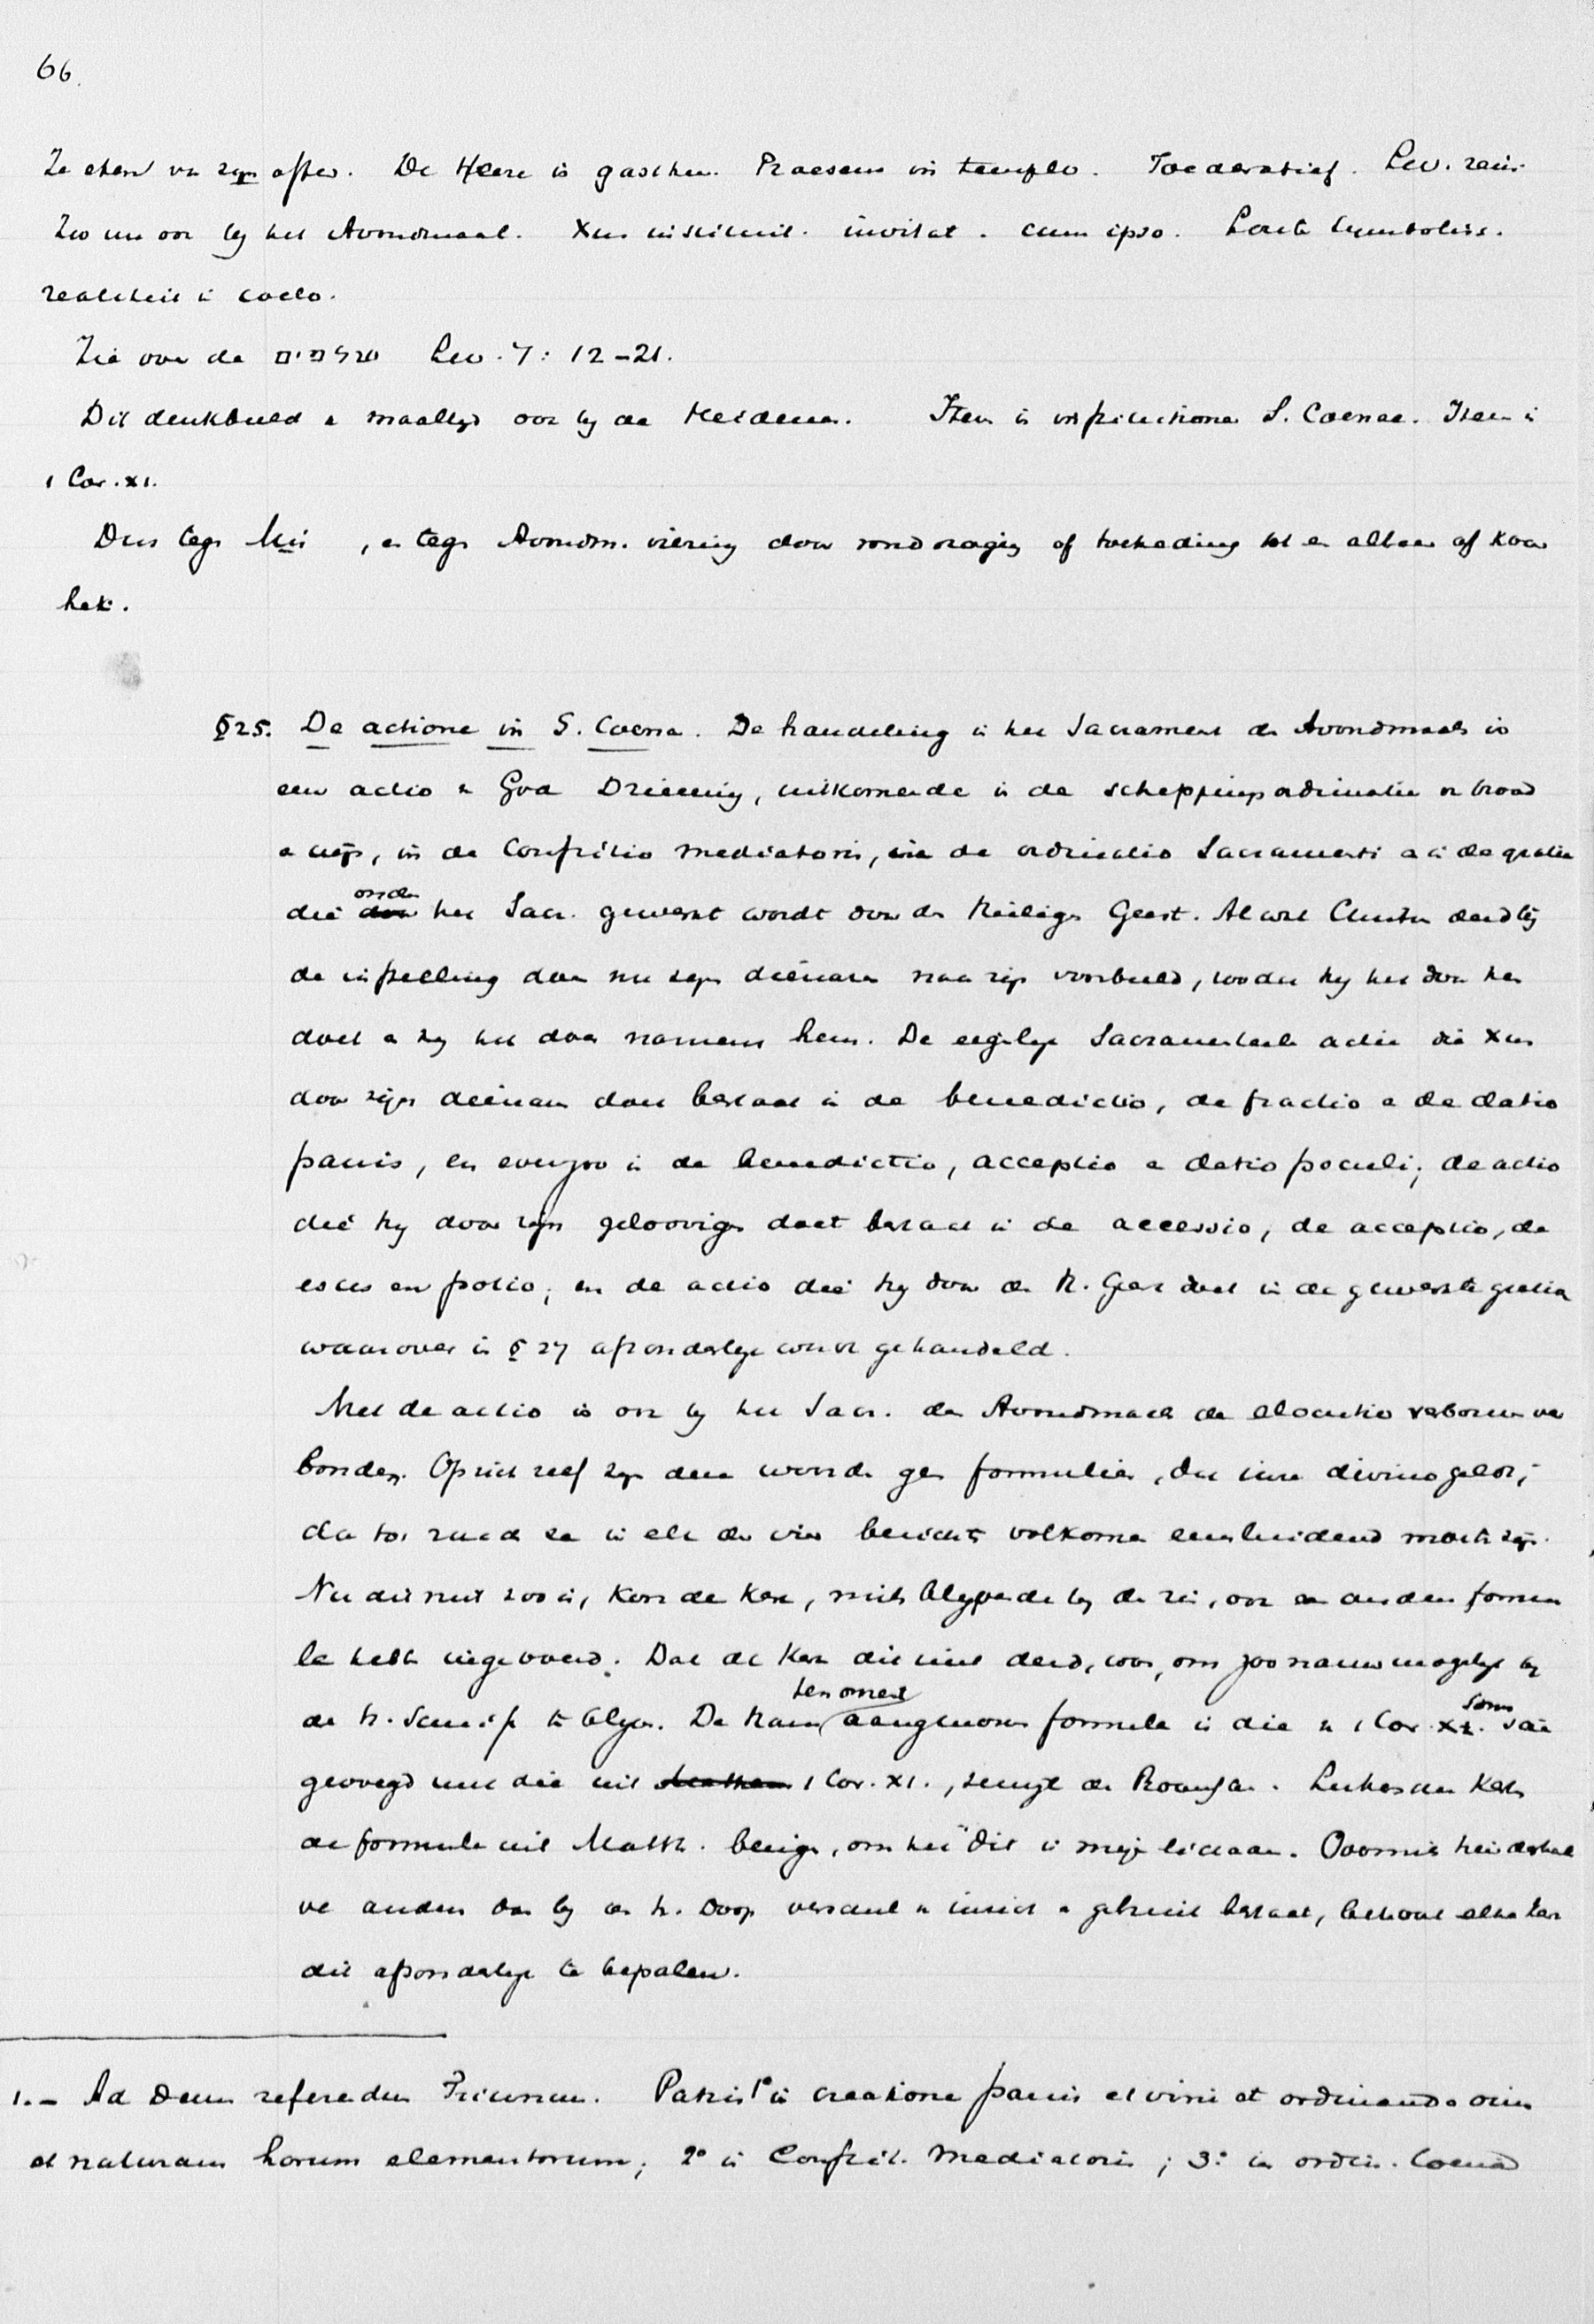 66.
Ze eten van zijn offer. De Heere is gastheer. Praesens in templo. Foederatief. Lev. rein.
Zoo nu ook bij het Avondmaal. Xus instituit. invitat. cum ipso. symbolisc.
realiteit in coelo.
Zie over de שלמים Lev. 7: 12-21.
Dit denkbeeld v maaltijd ook bij de Heidenen. Item in institutione S. Coenae. Item in
1 Cor. XI.
Dus tegen Mis, en tegen Avondm. viering door ronddraging of toetreding tot een altaar of Koor
hek.
§25. De actione in S. Coena. De handeling in het Sacrament des Avondmaals is
een actio v God Drieenig, uitkomende in de scheppingsordinatie v brood
en wijn, in de Constitutio mediatoris, in de ordinatio Sacramenti en in de gratia
die onder het Sacr. gewerkt wordt door den Heiligen Geest. Alwat Christus deed bij
de instelling doen nu zijn dienaren naar zijn voorbeeld, zoodat hij het door hen
doet en zij het doen namens hem. De eigenlijke Sacramenteele actie die Xus
door zijn dienaren doet bestaat in de benedictio, de fractio en de datio
panis, en evenzoo in de benedictio, acceptio en datio poculi; de actio
die hij door zijn geloovigen doet bestaat in de accessio, de acceptio, de
esus en potio; en de actio die hij door den H. Geest doet in de gewerkte gratia
waarover in § 27 afzonderlijk wordt gehandeld.
Met de actio is ook bij het Sacr. des Avondmaals de elocutio verborum ver
bonden. Op zich zelf zijn deze woorden geen formulier, dat iure divino geldt,
daar toch ze in elk der vier berichten volkomen eensluidend moesten zijn.
Nu dit niet zoo is, kon de Kerk, mits blijvende bij den zin, ook een andere formu
le hebben ingevoerd. Dat de Kerk dit niet deed, was, om zoo nauw mogelijk bij
de H. Schrift te blijven. De haar ten onzent aangenomen formule is die v 1 Cor. X. soms saam
gevoegd met die uit 1 Cor. XI., terwijl de Roomsche en Luthersche Kerk
de formule uit Matth. bezigen, om het "dit is mijn lichaam. Voormits hier derhal
ve anders dan bij den H. Doop verschil v inzicht en gebruik bestaat, behoort elke Kerk
dit afzonderlijk te bepalen.
1.- Ad Deum referendum Triunum. Patris 1° in creatione panis et vini et ordinando
et naturam horum elementorum; 2° in Constit. Mediatoris; 3° in ordin. Coena